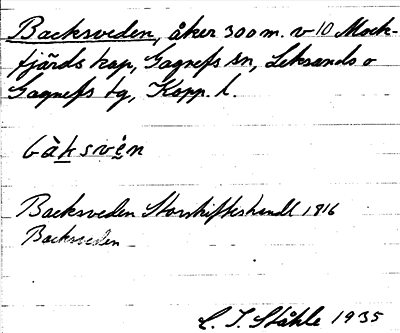 Backsveden, åker 300 m. v 10 Mock-
fjärds kap, Gagnefs sn, Leksands o
Gagnefs tg, Kopp. l.
bàksvèn
Backsveden Storskifteshandl 1816
Backsveden
C. I. Ståhle 1935